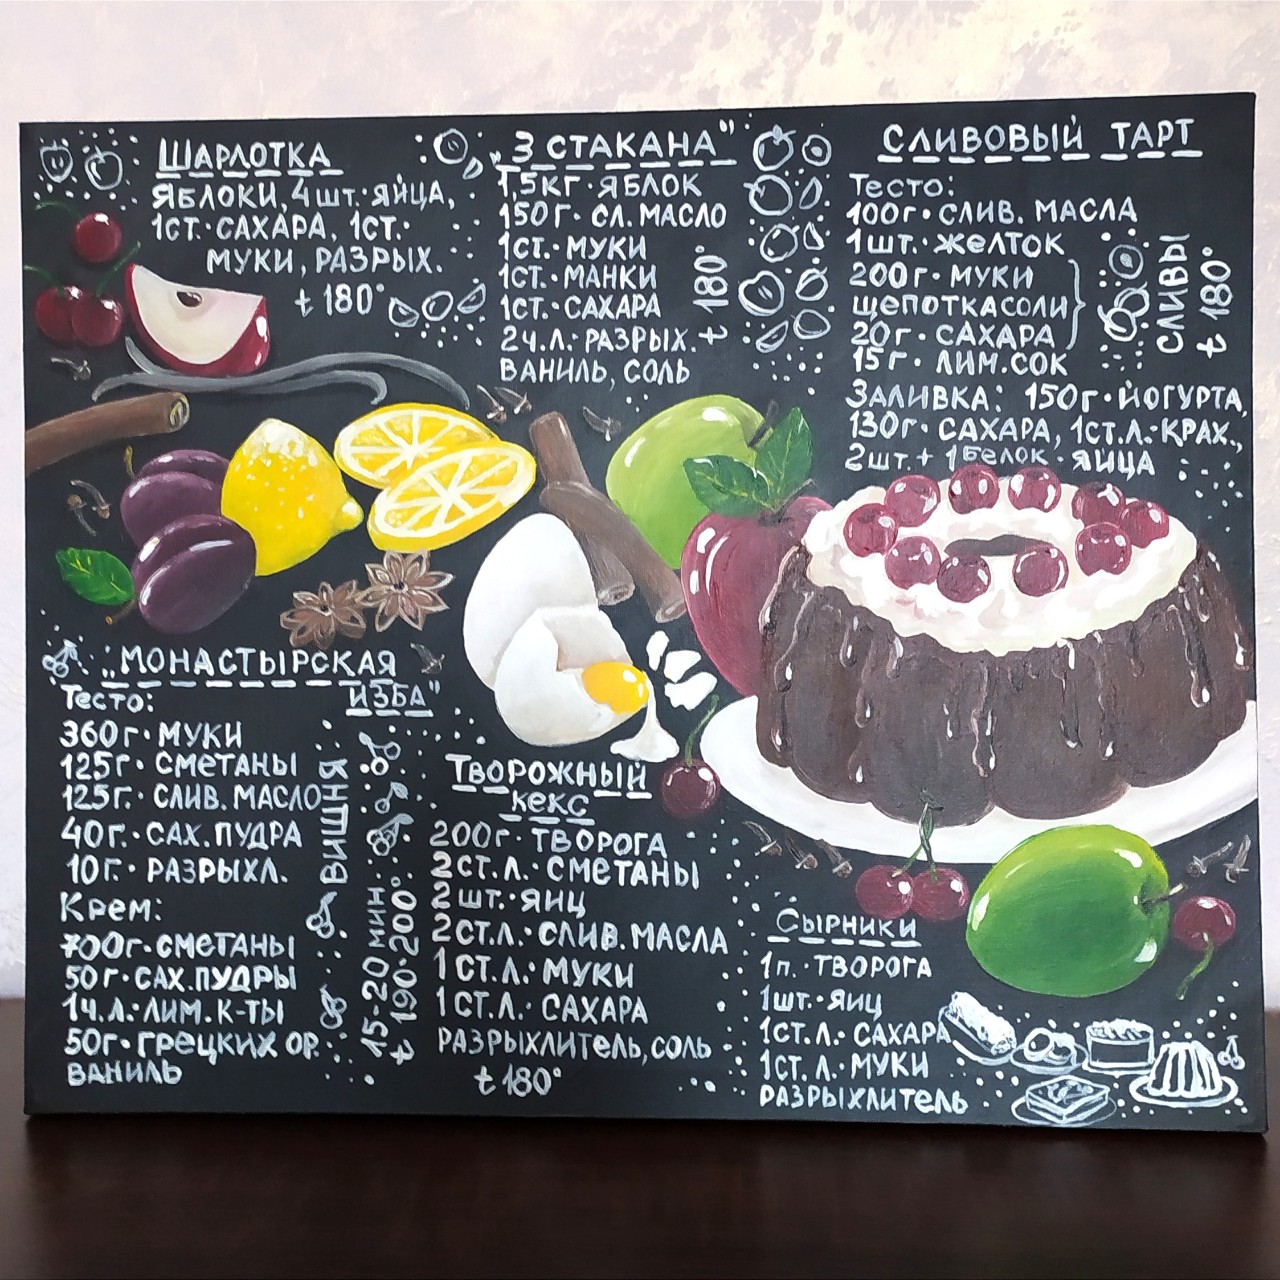 Шарлотка
яблоки, 4шт. яйца,
1ст. сахара, 1ст.
муки, разрых.
t 180°
„3 стакана"
1,5кг. яблок
150г. сл. масло
1ст. муки
1ст. манки
1ст. сахара
2ч.л. разрых.
ваниль, соль
t 180°
Сливовый тарт
Тесто:
100г. слив. масла
1шт. желток
200г. муки
щепотка соли
20г. сахара
15г. лим. сок
Сливы
t 180°
Заливка: 150г. йогурта,
130г. сахара, 1ст.л. крах.,
2шт. + 1белок. яйца
„Монастырская
изба"
Тесто:
360г. муки
125г. сметаны
125г. слив. масло
40г. сах. пудра
10г. разрыхл.
Крем:
700г. сметаны
50г. сах. пудры
1ч.л. лим. к-ты
50г. грецких ор.
ваниль
вишня
15-20 мин
t 190-200°
Творожный
кекс
200г. творога
2ст.л. сметаны
2шт. яиц
2ст.л. слив. масла
1ст.л. муки
1ст.л. сахара
разрыхлитель, соль
t 180°
Сырники
1п. творога
1шт. яиц
1ст.л. сахара
1ст.л. муки
разрыхлитель